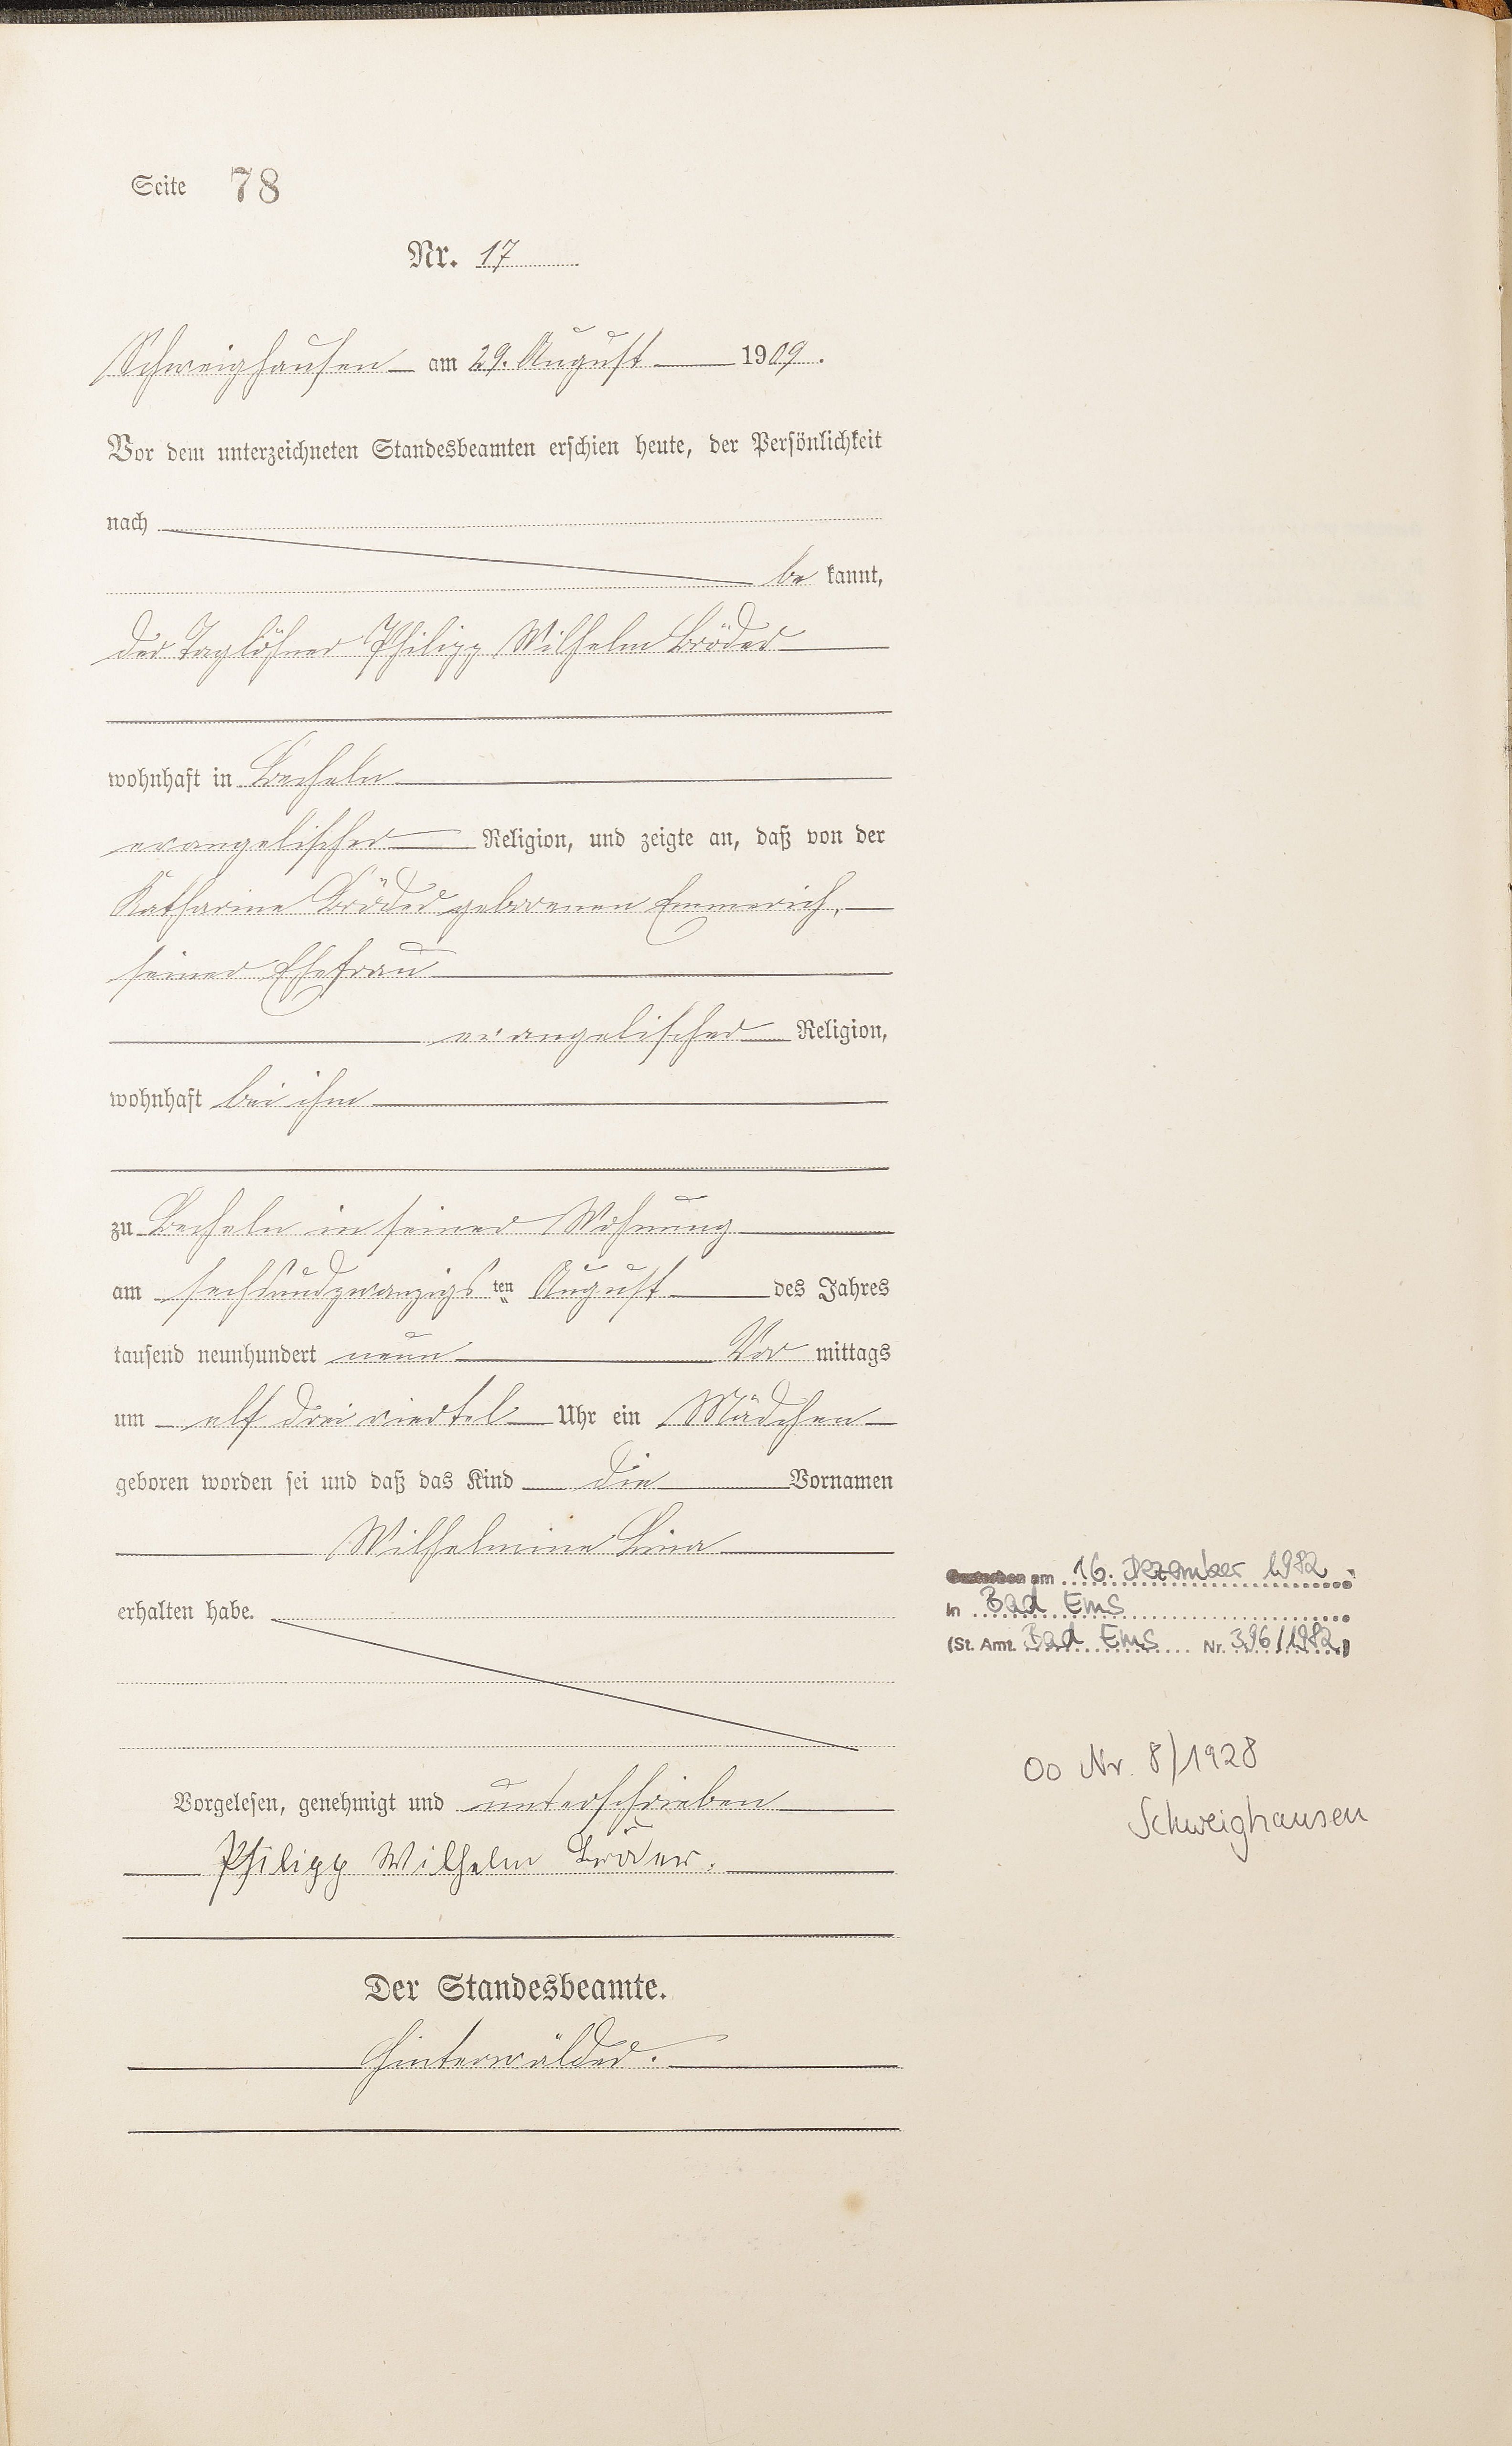 Seite 78
Nr. 17
Schweighausen am 29. August 1909.
Vor dem unterzeichneten Standesbeamten erschien heute, der Persönlichkeit
nach
be kannt,
der Taglöhner Philipp Wilhelm Bröder
wohnhaft in Becheln
evangelischer Religion, und zeigte an, daß von der
Katharine Bröder geborenen Emmerich,
seiner Ehefrau
evangelischer Religion,
wohnhaft bei ihm
zu Becheln in seiner Wohnung
am sechsundzwanzigsten August des Jahres
tausend neunhundert neun Vor mittags
um elf drei viertel Uhr ein Mädchen
geboren worden sei und daß das Kind die Vornamen
Wilhelmine Lina
erhalten habe.
Vorgelesen, genehmigt und unterschrieben
Philipp Wilhelm Bröder.
Der Standesbeamte.
Hinterwälder.
Gestorben am 16. Dezember 1982
in Bad Ems
(St. Amt. Bad Ems Nr. 396/1982)
Oo Nr. 8/1928
Schweighausen